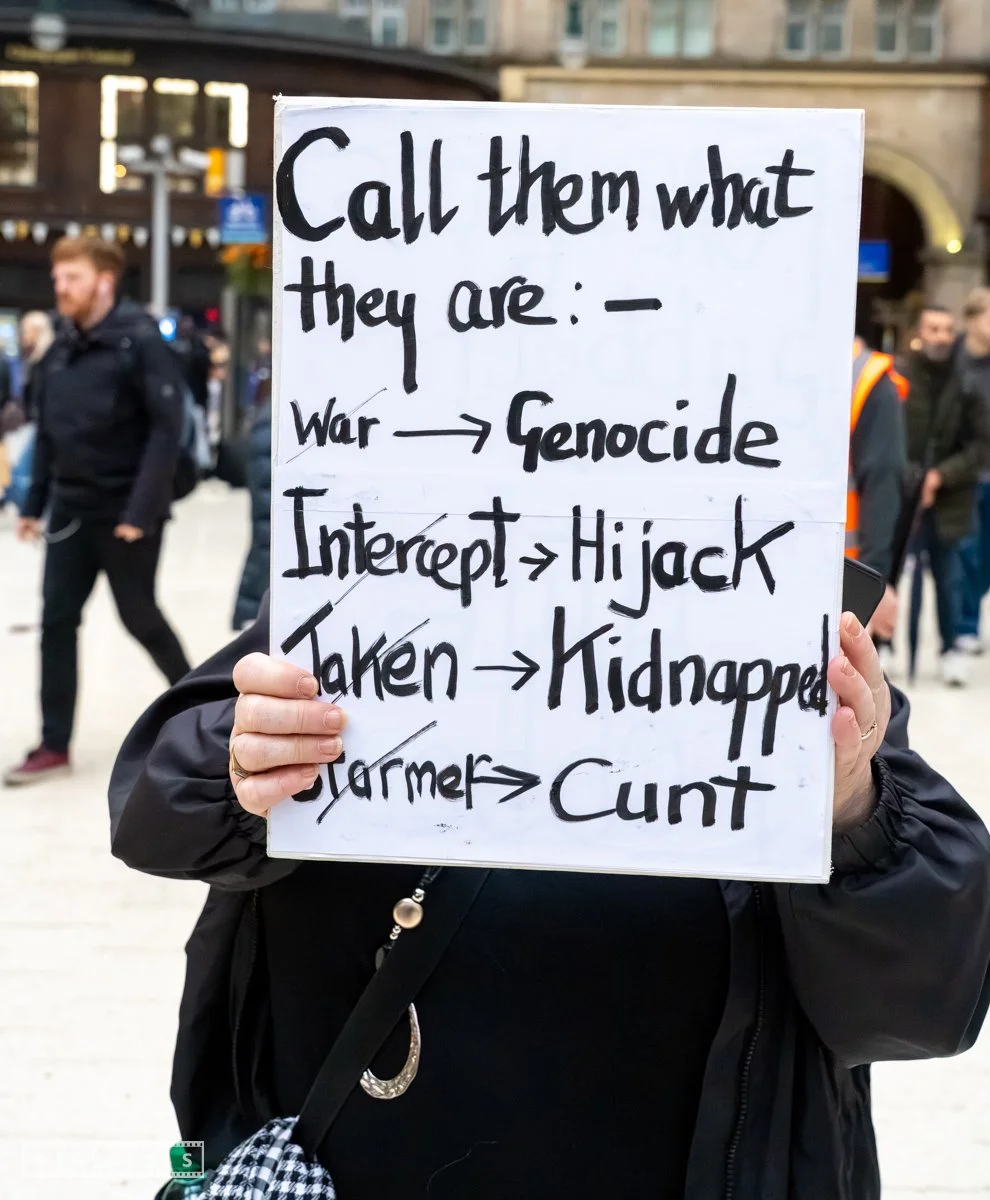 Call them what
they are:-
War → Genocide
Intercept → Hijack
Taken → Kidnapped
Starmer → Cunt
S